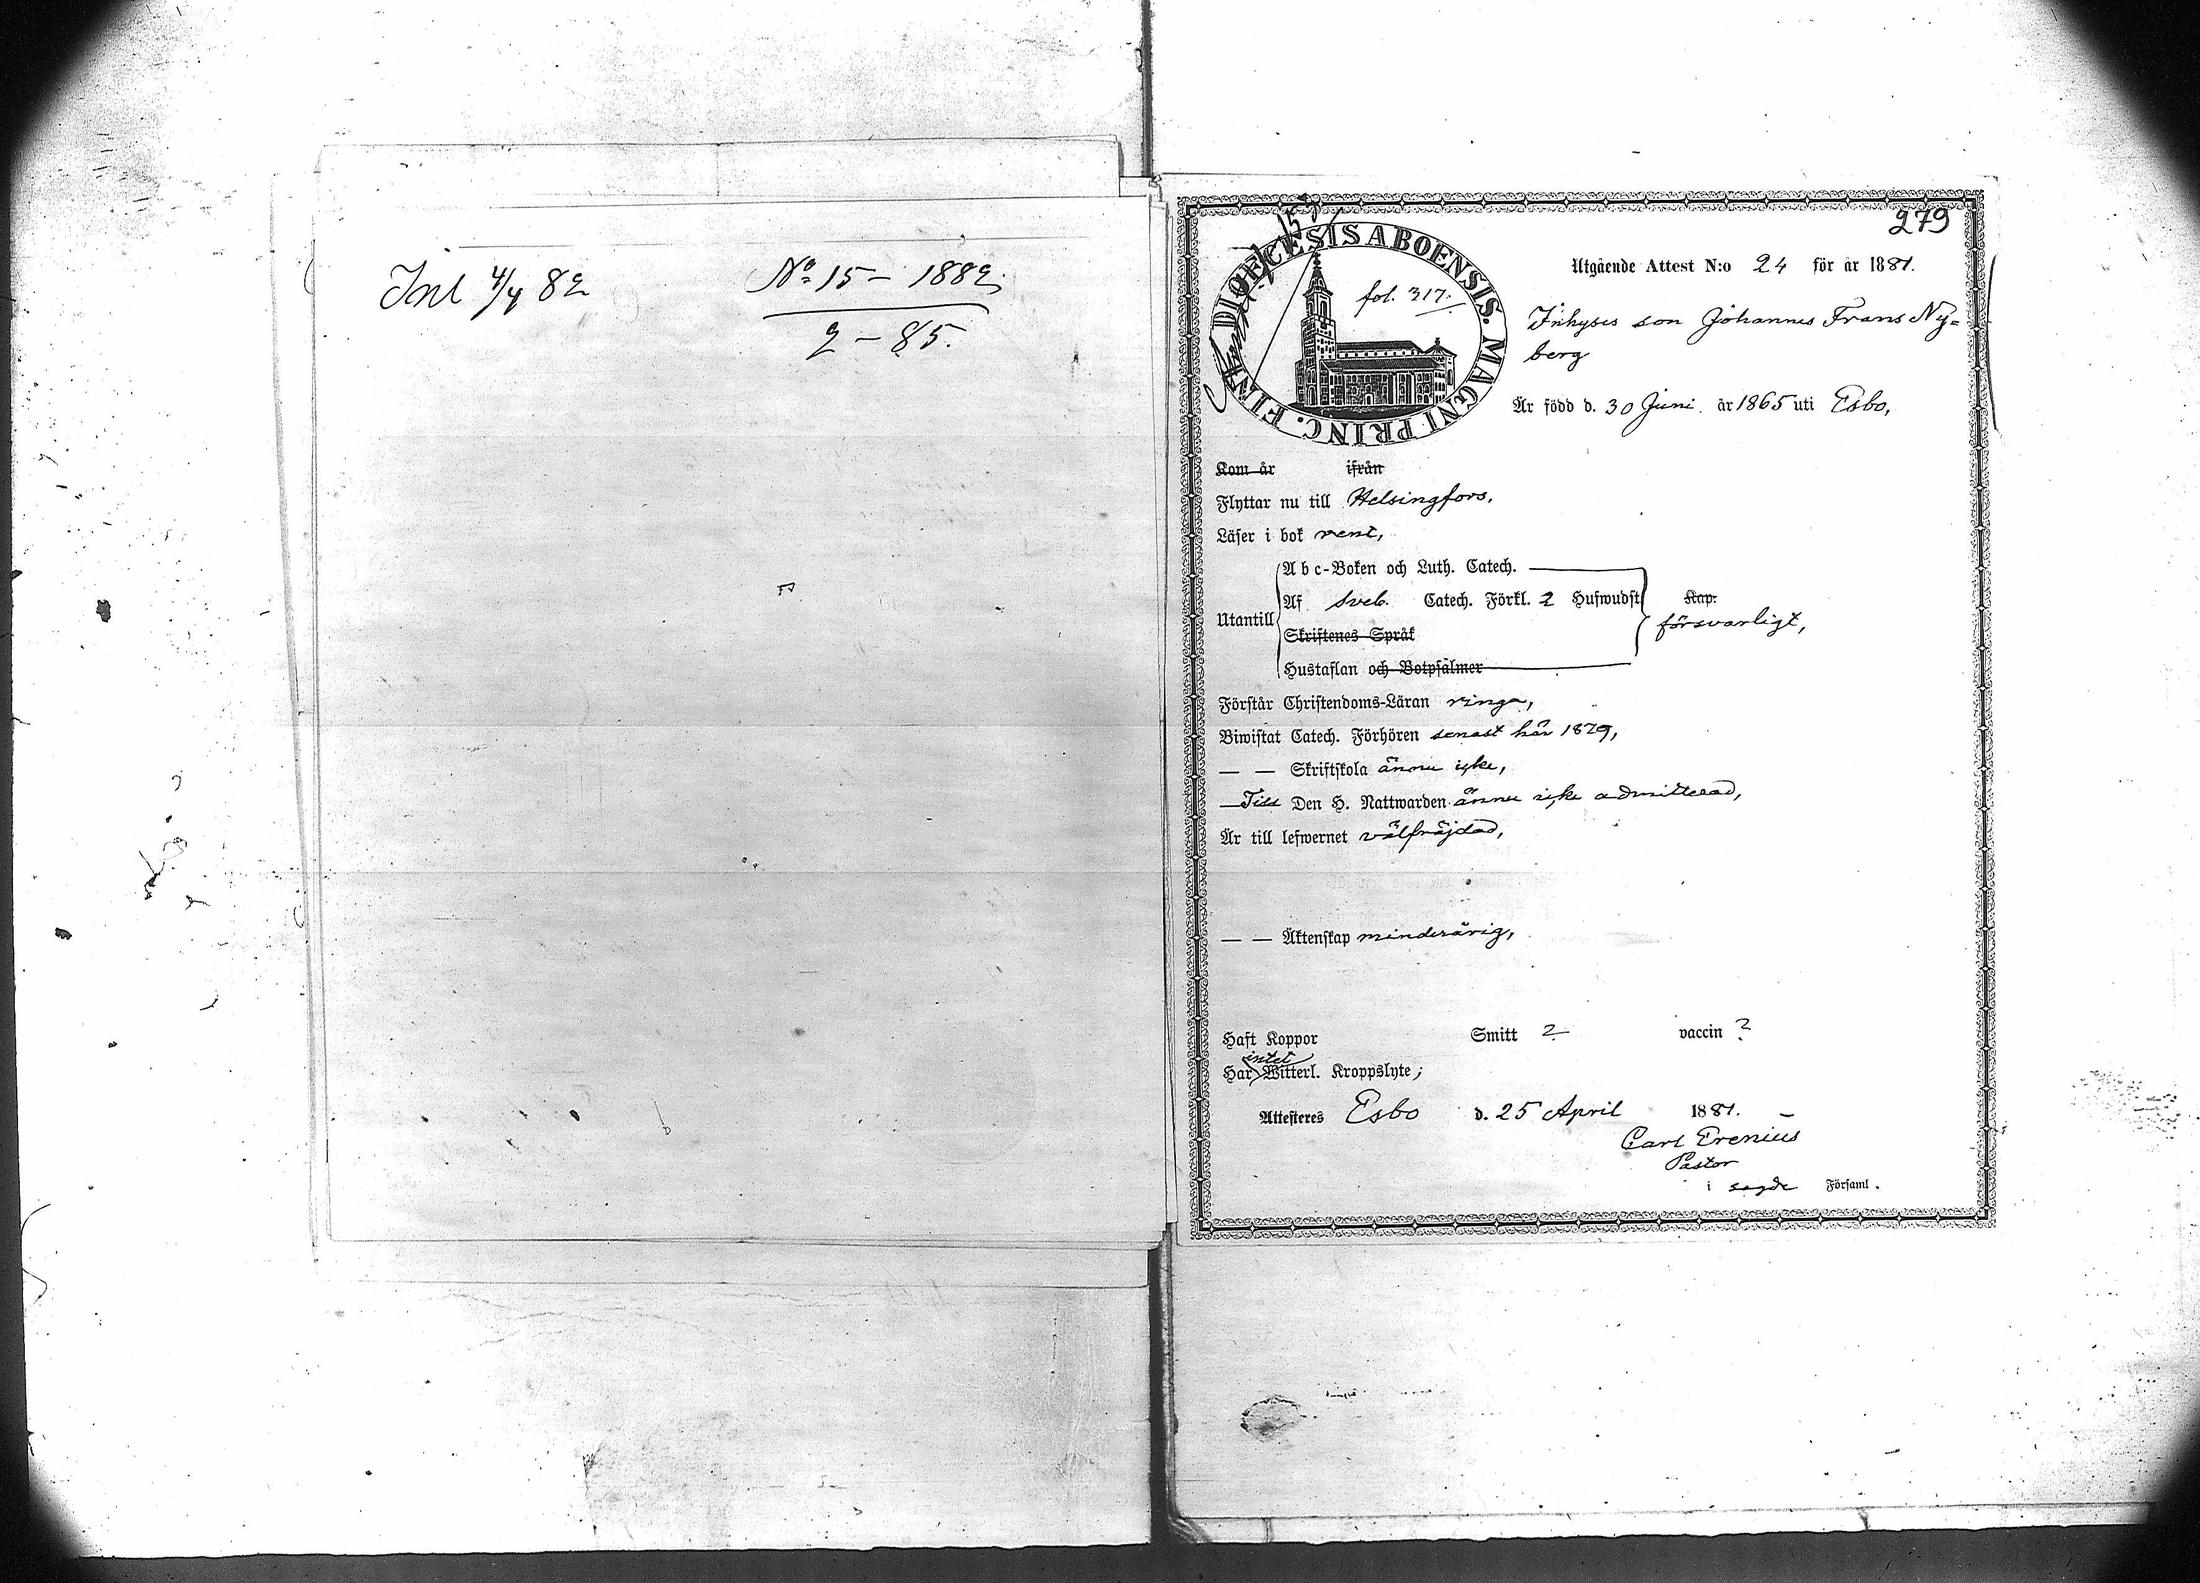 Inl 4/4 82
No 15 - 1882.
2 - 85.
279
DIOECESIS ABOENSIS. MAGNI PRINC. FINL.
fol. 317.
Utgående Attest N:o 24 för år 1881.
Inhyses son Johannes Frans Ny=
berg
Är född d. 30 Juni. år 1865 uti Esbo,
Kom år ifrån
Flyttar nu till Helsingfors,
Läser i bok rent,
Abc-Boken och Luth. Catech.
Utantill Af Sveb. Catech. Förkl. 2 Hufwudst Kap.
försvarligt,
Skriftenes Språk
Hustaflan och Botpsalmer
Förstår Christendoms-Läran ringa,
Biwistat Catech. Förhören senast här 1879,
— — Skriftskola ännu icke,
— Till Den H. Nattwarden ännu icke admitterad,
Är till lefwernet välfräjdad,
— — Äktenskap minderårig,
Haft Koppor Smitt ? vaccin ?
intet
Har Witterl. Kroppslyte;
Attesteres Esbo d. 25 April 1881.
Carl Erenius
Pastor
i sagde Församl.